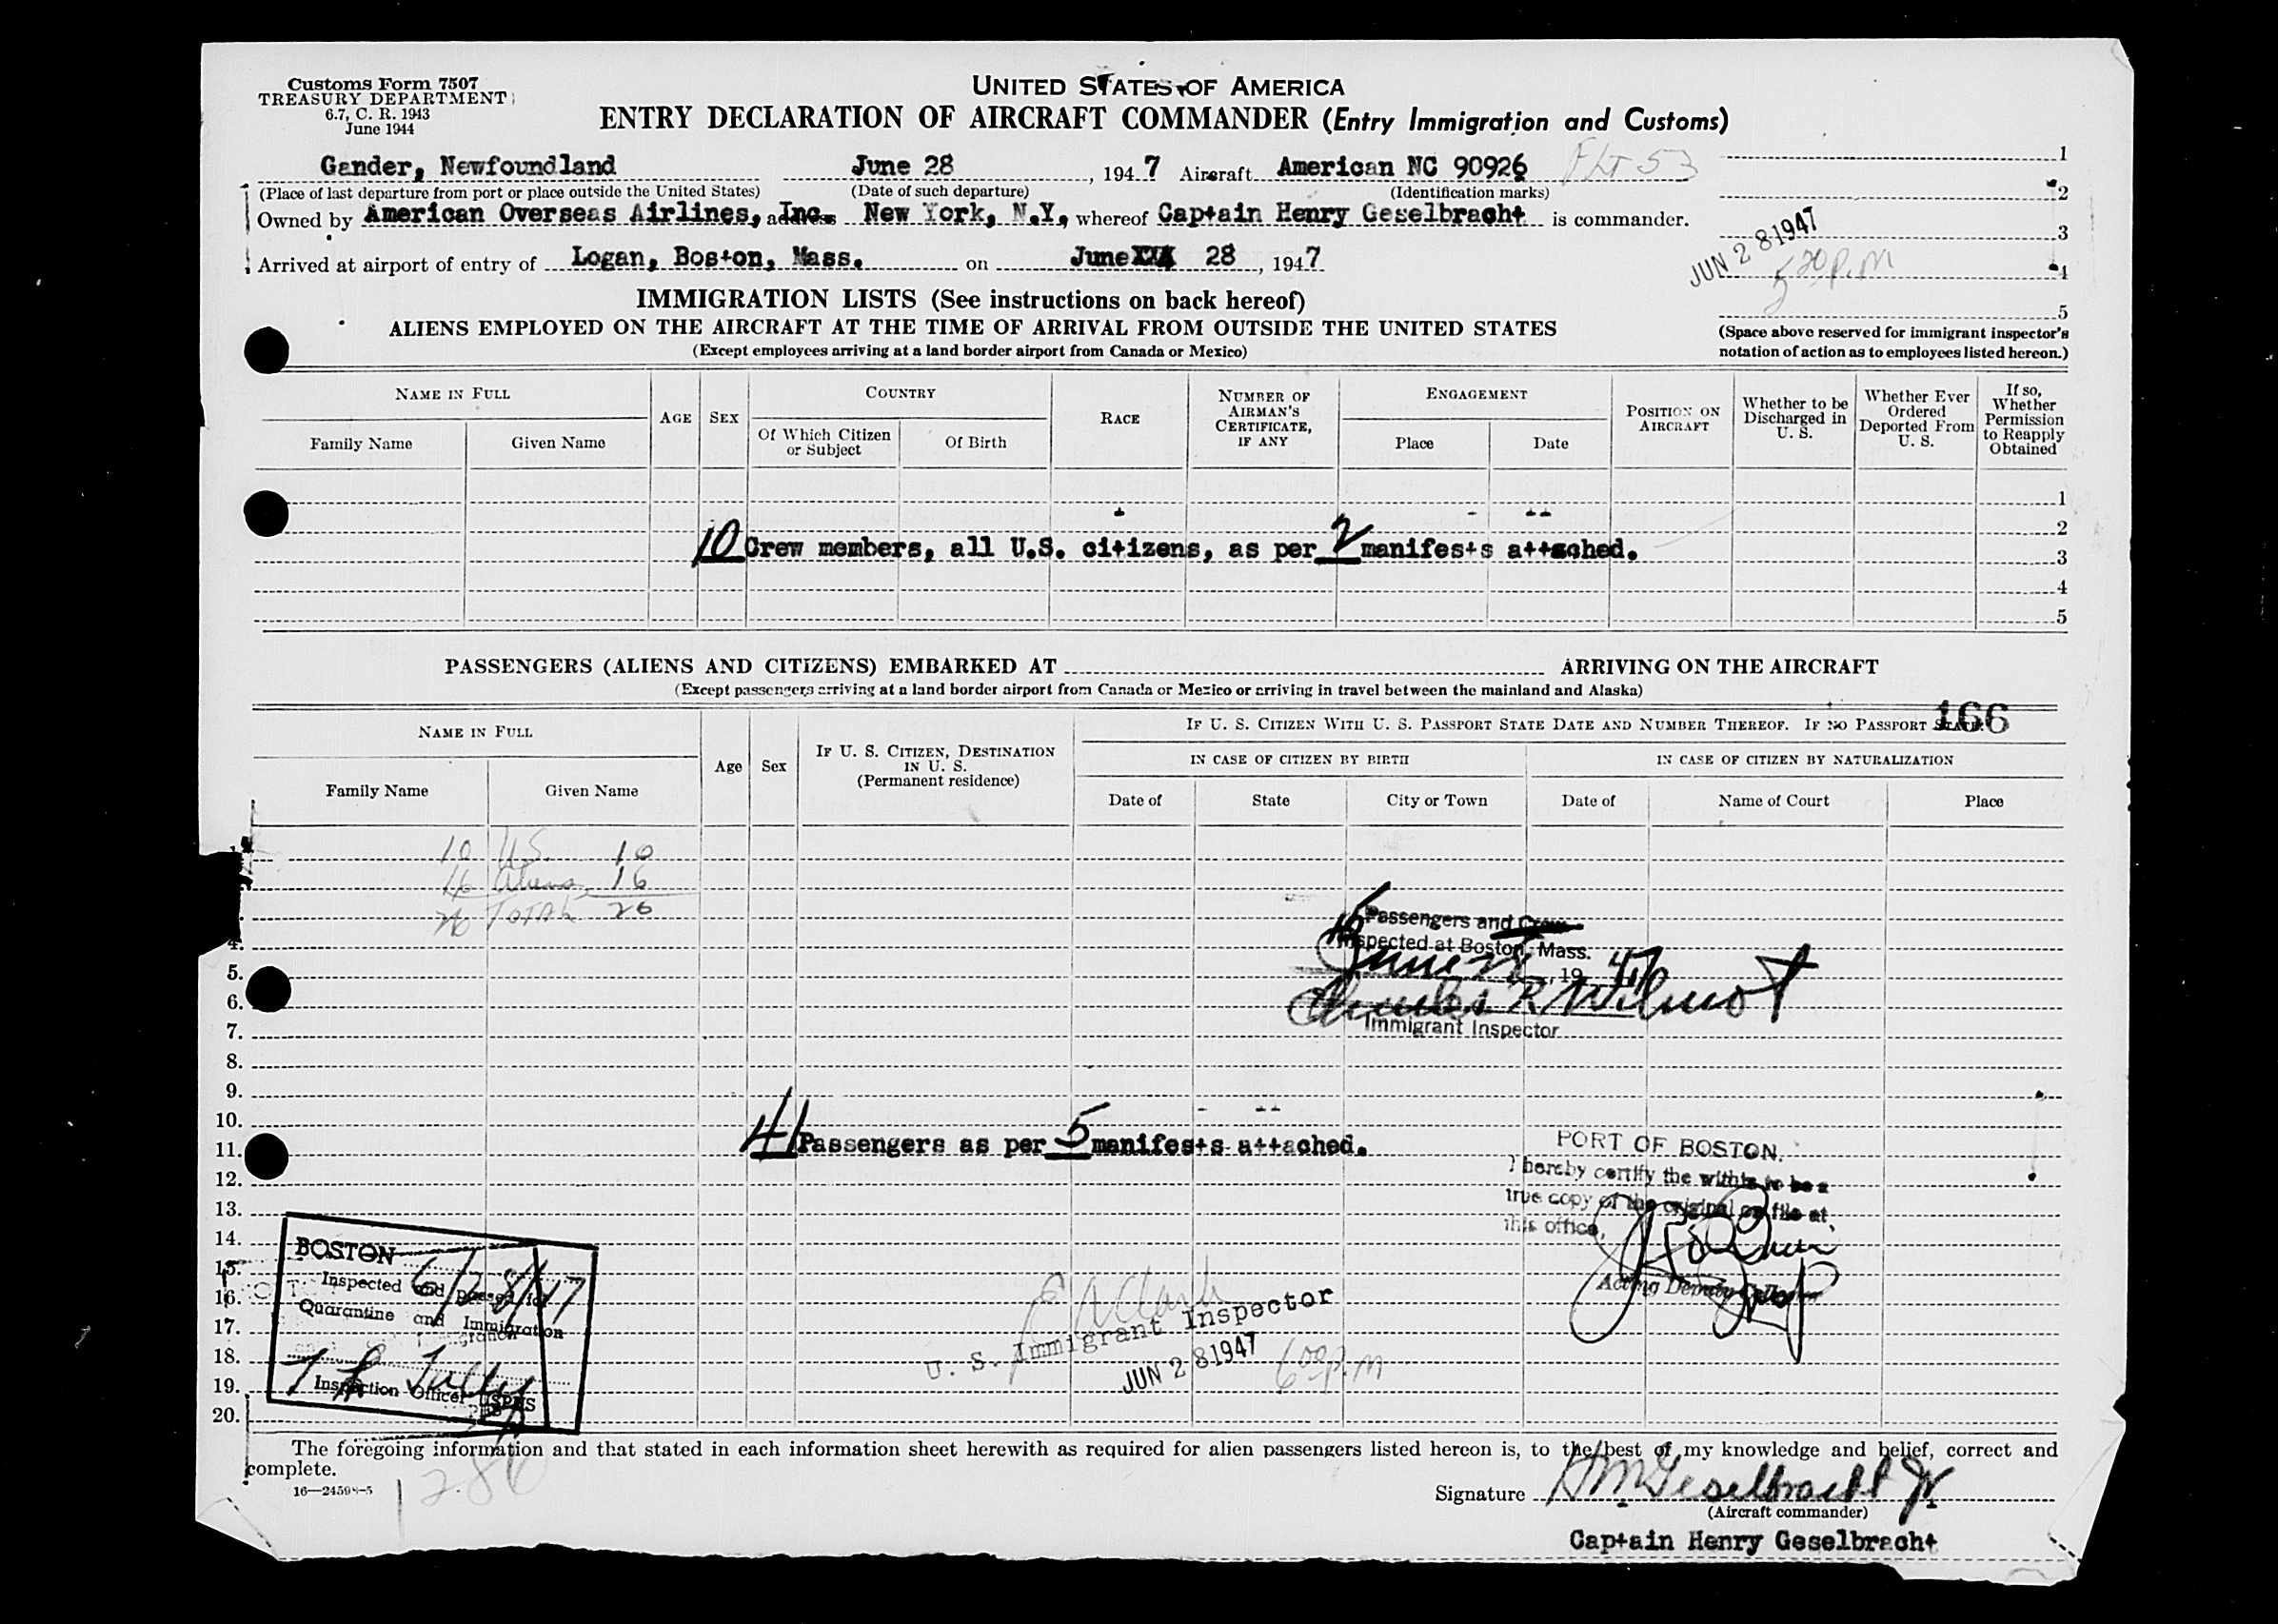 Customs Form 7507
TREASURY DEPARTMENT
6.7, C. R. 1943
June 1944
UNITED STATES OF AMERICA
ENTRY DECLARATION OF AIRCRAFT COMMANDER (Entry Immigration and Customs)
Gander, Newfoundland June 28, 1947 Aircraft American NC 90926 FLT 53
(Place of last departure from port or place outside the United States) (Date of such departure) (Identification marks)
Owned by American Overseas Airlines, Inc. address New York, N.Y, whereof Captain Henry Geselbracht is commander.
Arrived at airport of entry of Logan, Boston, Mass. on June XXX 28, 1947
1
2
3
4
5
JUN 28 1947
520 P.M
(Space above reserved for immigrant inspector's
notation of action as to employees listed hereon.)
IMMIGRATION LISTS (See instructions on back hereof)
ALIENS EMPLOYED ON THE AIRCRAFT AT THE TIME OF ARRIVAL FROM OUTSIDE THE UNITED STATES
(Except employees arriving at a land border airport from Canada or Mexico)
NAME IN FULL
Family Name
Given Name
AGE
SEX
COUNTRY
Of Which Citizen
or Subject
Of Birth
RACE
NUMBER OF
AIRMAN'S
CERTIFICATE,
IF ANY
ENGAGEMENT
Place
Date
POSITION ON
AIRCRAFT
Whether to be
Discharged in
U. S.
Whether Ever
Ordered
Deported From
U. S.
If so,
Whether
Permission
to Reapply
Obtained
1
2
10 Crew members, all U.S. citizens, as per 2 manifests attached.
3
4
5
PASSENGERS (ALIENS AND CITIZENS) EMBARKED AT ARRIVING ON THE AIRCRAFT
(Except passengers arriving at a land border airport from Canada or Mexico or arriving in travel between the mainland and Alaska)
NAME IN FULL
Family Name
Given Name
Age
Sex
IF U. S. CITIZEN, DESTINATION
IN U. S.
(Permanent residence)
IF U. S. CITIZEN WITH U. S. PASSPORT STATE DATE AND NUMBER THEREOF. IF NO PASSPORT STATE:
166
IN CASE OF CITIZEN BY BIRTH
IN CASE OF CITIZEN BY NATURALIZATION
Date of
State
City or Town
Date of
Name of Court
Place
10 U.S. 10
16 Aliens 16
26 TOTAL 26
Passengers and Crew
Inspected at Boston, Mass.
June 1947
Charles R. Wilmot
Immigrant Inspector
4.
5.
6.
7.
8.
9.
10.
11.
41 Passengers as per 5 manifests attached.
12.
13.
14.
15.
16.
17.
18.
19.
20.
PORT OF BOSTON.
I hereby certify the within to be a
true copy of the original on file at
this office.
Acting Deputy Collector
BOSTON 6/28/47
Inspected and passed for
Quarantine and Immigration
Inspection Officer USPHS
U. S. Immigrant Inspector
JUN 28 1947 600 P.M
The foregoing information and that stated in each information sheet herewith as required for alien passengers listed hereon is, to the best of my knowledge and belief, correct and
complete.
16—24598-5
Signature H M Geselbracht Jr
(Aircraft commander)
Captain Henry Geselbracht